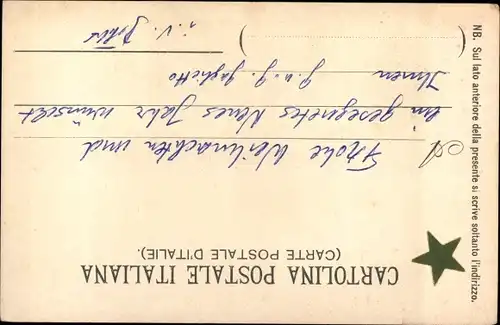 CARTOLINA POSTALE ITALIANA
(CARTE POSTALE D'ITALIE).
NB. Sul lato anteriore della presente si scrive soltanto l'indirizzo.
Frohe Weihnachten und
ein gesegnetes Neues Jahr wünscht
Ihnen